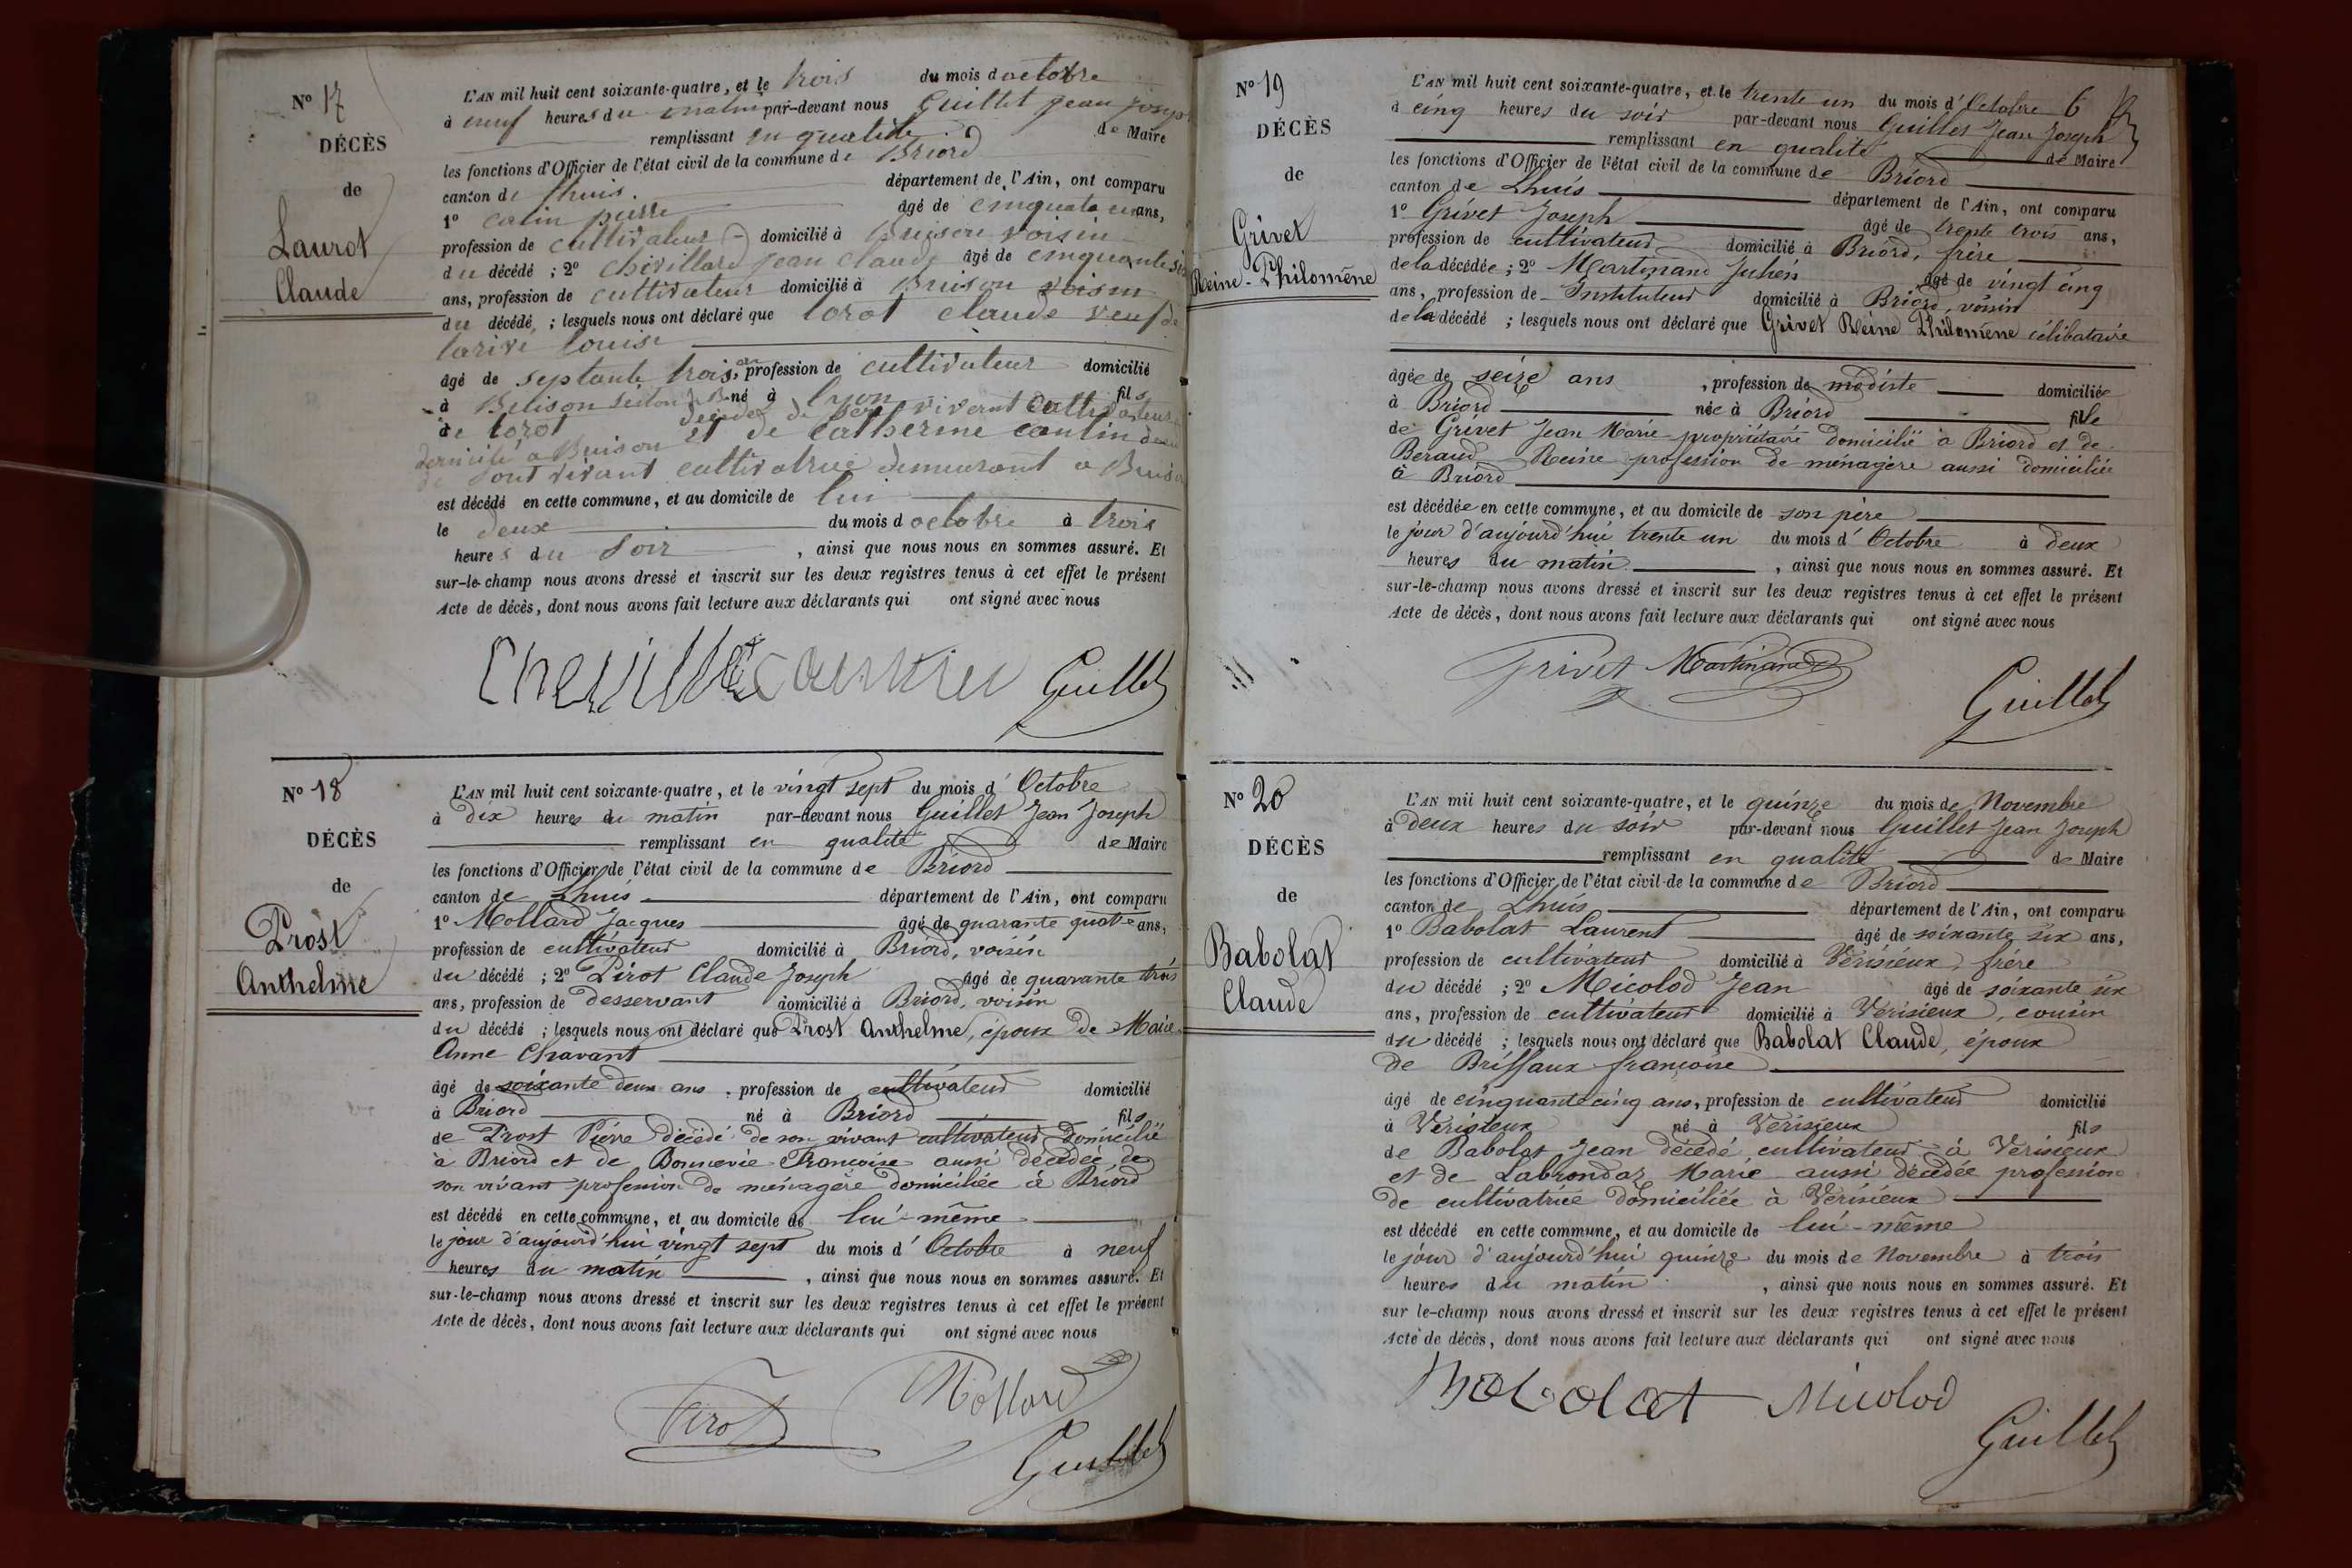 N° 17
DÉCÈS
de
Laurot
Claude
L'AN mil huit cent soixante-quatre, et le trois du mois d octobre
à neuf heures du matin par-devant nous Guillet Jean Joseph
remplissant en qualité de Maire
les fonctions d'Officier de l'état civil de la commune de Briord
canton de Lhuis. département de l'Ain, ont comparu
1° pierre âgé de ans,
profession de cultivateur domicilié à voisin
du décédé ; 2° Chevillard jean claude âgé de cinquante six
ans, profession de cultivateur domicilié à voisin
du décédé ; lesquels nous ont déclaré que lorot claude veuf de
larive louise
âgé de septante trois, an profession de cultivateur domicilié
à né à lyon fils
de lorot décédé de son vivant cultivateur
domicilié a Buison et de catherine
vivant cultivatrice demeurant a
est décédé en cette commune, et au domicile de lui
le deux du mois d octobre à trois
heures du soir , ainsi que nous nous en sommes assuré. Et
sur-le-champ nous avons dressé et inscrit sur les deux registres tenus à cet effet le présent
Acte de décès, dont nous avons fait lecture aux déclarants qui ont signé avec nous
Guillet
N° 18
DÉCÈS
de
Prost
Anthelme
L'AN mil huit cent soixante-quatre, et le vingt sept du mois d' Octobre
à dix heures du matin par-devant nous Guillet Jean Joseph
remplissant en qualité de Maire
les fonctions d'Officier de l'état civil de la commune de Briord
canton de Lhuis département de l'Ain, ont comparu
1° Mollard Jacques âgé de quarante quatre ans,
profession de cultivateur domicilié à Briord, voisin
du décédé ; 2° Pirot Claude Joseph âgé de quarante trois
ans, profession de desservant domicilié à Briord, voisin
du décédé ; lesquels nous ont déclaré que Prost Anthelme, époux de Marie
Anne Chavant
âgé de soixante deux ans , profession de cultivateur domicilié
à Briord né à Briord fils
de Prost Piérre décédé de son vivant cultivateur domicilié
à Briord et de Bonnevie Françoise aussi décédée de
son vivant profession de ménagère domiciliée à Briord
est décédé en cette commune, et au domicile de lui-même
le jour d'aujourd'hui vingt sept du mois d' Octobre à neuf
heures du matin , ainsi que nous nous en sommes assuré. Et
sur-le-champ nous avons dressé et inscrit sur les deux registres tenus à cet effet le présent
Acte de décès, dont nous avons fait lecture aux déclarants qui ont signé avec nous
Pirot Mollard
Guillet
N° 19
DÉCÈS
de
Grivet
Reine-Philomène
L'AN mil huit cent soixante-quatre, et le trente un du mois d' Octobre 6
à cinq heures du soir par-devant nous Guillet Jean Joseph
remplissant en qualité de Maire
les fonctions d'Officier de l'état civil de la commune de Briord
canton de Lhuis département de l'Ain, ont comparu
1° Grivet Joseph âgé de trente trois ans,
profession de cultivateur domicilié à Briord, frère
de la décédée ; 2° Martinand Julien âgé de vingt cinq
ans, profession de Instituteur domicilié à Briord, voisin
de la décédé ; lesquels nous ont déclaré que Grivet Reine Philomène célibataire
âgée de seize ans , profession de modiste domiciliée
à Briord née à Briord fille
de Grivet Jean Marie propriétaire domicilié à Briord et de
Beraud Reine profession de ménagère aussi domiciliée
à Briord
est décédée en cette commune, et au domicile de son père
le jour d'aujourd'hui trente un du mois d' Octobre à deux
heures du matin , ainsi que nous nous en sommes assuré. Et
sur-le-champ nous avons dressé et inscrit sur les deux registres tenus à cet effet le présent
Acte de décès, dont nous avons fait lecture aux déclarants qui ont signé avec nous
Grivet Martinand
Guillet
N° 20
DÉCÈS
de
Babolat
Claude
L'AN mil huit cent soixante-quatre, et le quinze du mois de Novembre
à deux heures du soir par-devant nous Guillet Jean Joseph
remplissant en qualité de Maire
les fonctions d'Officier de l'état civil de la commune de Briord
canton de Lhuis département de l'Ain, ont comparu
1° Babolat Laurent âgé de soixante six ans,
profession de cultivateur domicilié à Vérisieux, frère
du décédé ; 2° Micolod Jean âgé de soixante six
ans, profession de cultivateur domicilié à Vérisieux, cousin
du décédé ; lesquels nous ont déclaré que Babolat Claude, époux
de Briffaux françoise
âgé de cinquante cinq ans, profession de cultivateur domicilié
à Vérisieux né à Vérisieux fils
de Babolat Jean décédé cultivateur à Vérisieux
et de Labrondaz Marie aussi décédée profession
de cultivatrice domiciliée à Vérisieux
est décédé en cette commune, et au domicile de lui-même
le jour d'aujourd'hui quinze du mois de Novembre à trois
heures du matin , ainsi que nous nous en sommes assuré. Et
sur le-champ nous avons dressé et inscrit sur les deux registres tenus à cet effet le présent
Acte de décès, dont nous avons fait lecture aux déclarants qui ont signé avec nous
Babolat Micolod
Guillet